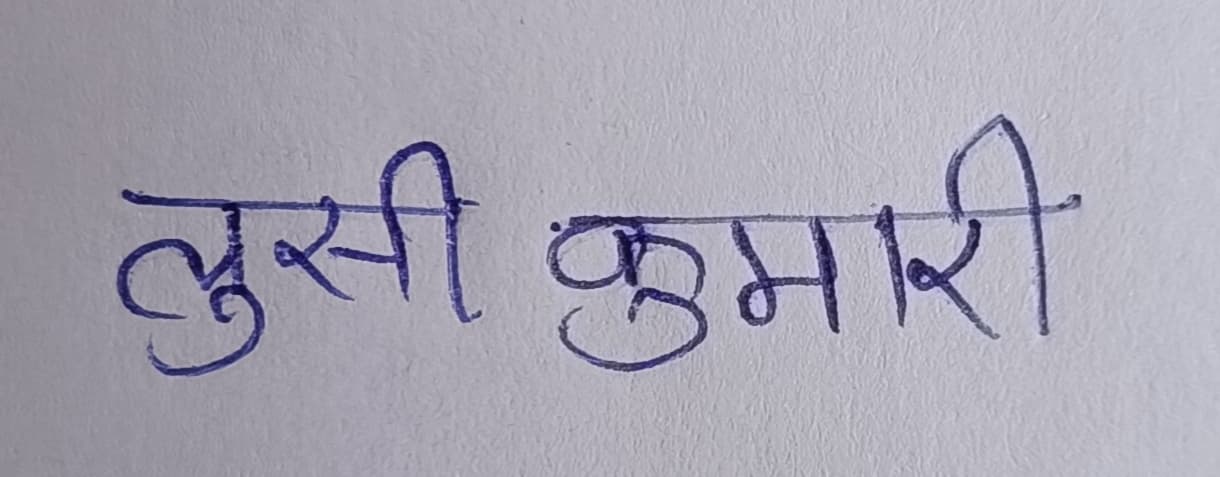 लुसी कुमारी